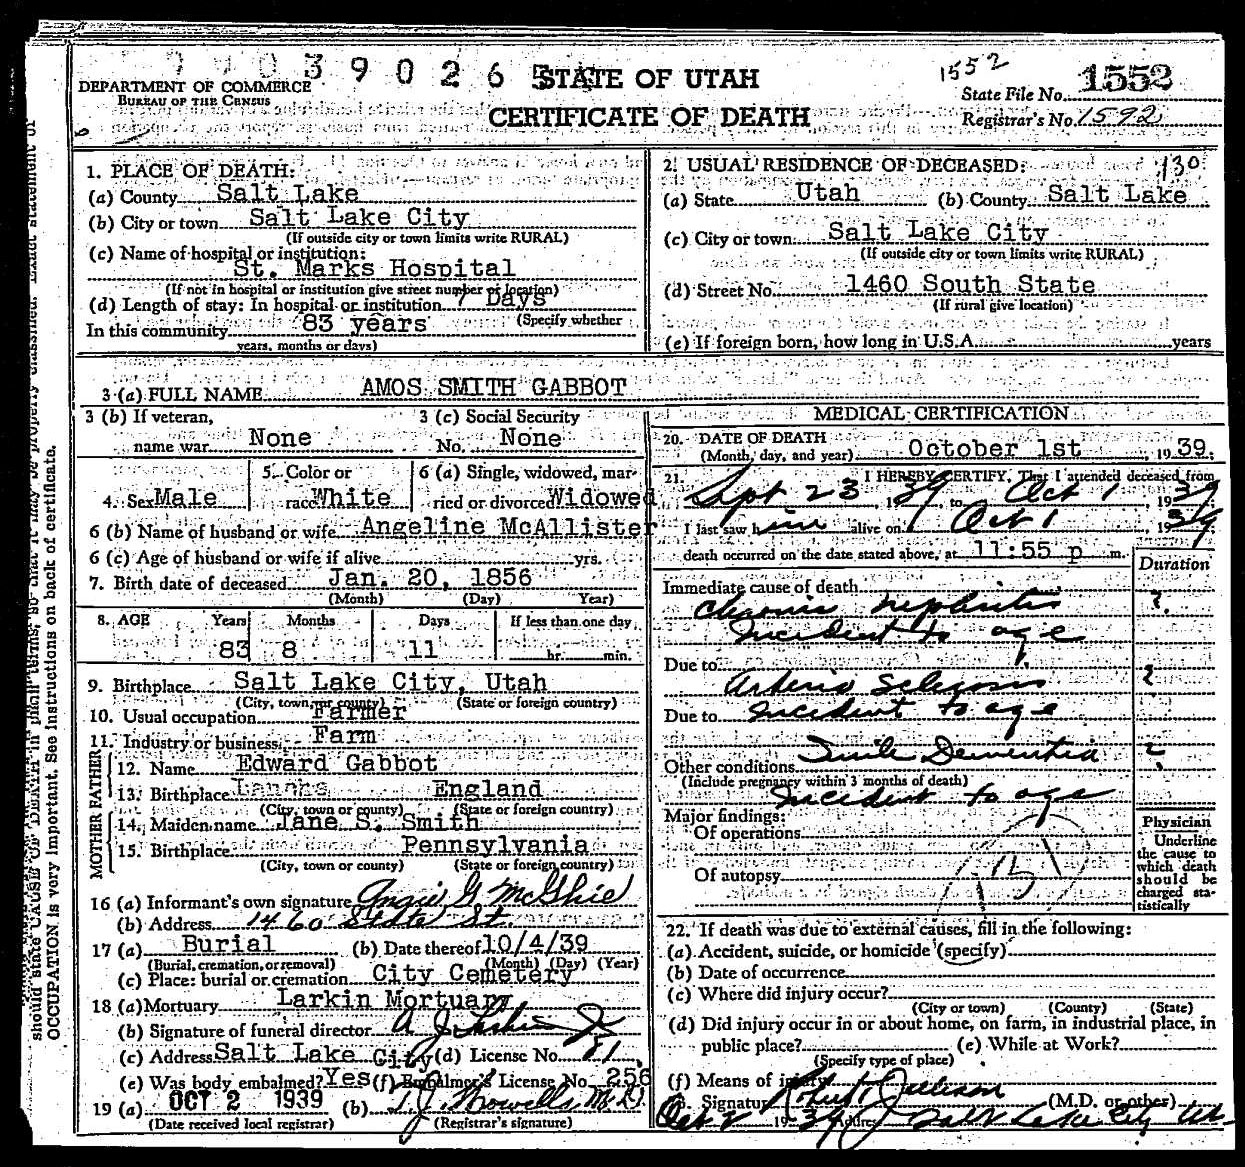 39026
STATE OF UTAH
CERTIFICATE OF DEATH
DEPARTMENT OF COMMERCE
BUREAU OF THE CENSUS
1552
State File No. 1552
Registrar's No. 1592
1. PLACE OF DEATH:
(a) County Salt Lake
(b) City or town Salt Lake City
(If outside city or town limits write RURAL)
(c) Name of hospital or institution:
St. Marks Hospital
(If not in hospital or institution give street number or location)
(d) Length of stay: In hospital or institution 7 Days
(Specify whether
In this community 83 years
years, months or days)
2. USUAL RESIDENCE OF DECEASED: 130
(a) State Utah (b) County Salt Lake
(c) City or town Salt Lake City
(If outside city or town limits write RURAL)
(d) Street No. 1460 South State
(If rural give location)
(e) If foreign born, how long in U.S.A. years
3 (a) FULL NAME AMOS SMITH GABBOT
3 (b) If veteran,
name war None
3 (c) Social Security
No. None
4. Sex Male
5. Color or
race White
6 (a) Single, widowed, mar-
ried or divorced Widowed
6 (b) Name of husband or wife Angeline McAllister
6 (c) Age of husband or wife if alive yrs.
7. Birth date of deceased Jan. 20, 1856
(Month) (Day) Year)
8. AGE Years Months Days If less than one day
83 8 11 hr. min.
9. Birthplace Salt Lake City, Utah
(City, town or county) (State or foreign country)
10. Usual occupation Farmer
11. Industry or business Farm
FATHER
12. Name Edward Gabbot
13. Birthplace England
(City, town or county) (State or foreign country)
MOTHER
14. Maiden name Jane S. Smith
15. Birthplace Pennsylvania
(City, town or county) (State or foreign country)
16 (a) Informant's own signature Angie G McGhie
(b) Address 1460 State St.
17 (a) Burial (b) Date thereof 10/4/39
(Burial, cremation, or removal) (Month) (Day) (Year)
(c) Place: burial or cremation City Cemetery
18 (a) Mortuary Larkin Mortuary
(b) Signature of funeral director A J Larkin Jr
(c) Address Salt Lake City (d) License No. 11
(e) Was body embalmed? Yes (f) Embalmer's License No. 256
19 (a) OCT 2 1939 (b) T. J. Howells M.D.
(Date received local registrar) (Registrar's signature)
MEDICAL CERTIFICATION
20. DATE OF DEATH
(Month, day, and year) October 1st, 1939.
21. I HEREBY CERTIFY, That I attended deceased from
Sept 23, 1939 to Oct 1, 1939
I last saw him alive on Oct 1, 1939
death occurred on the date stated above, at 11:55 p m.
Duration
Immediate cause of death
Chronic nephritis ?
Incident to age
Due to
Arterio Sclerosis ?
Due to Incident to age
Senile Dementia ?
Other conditions
(Include pregnancy within 3 months of death)
Incident to age
Major findings:
Of operations
Of autopsy
Physician
Underline
the cause to
which death
should be
charged sta-
tistically
22. If death was due to external causes, fill in the following:
(a) Accident, suicide, or homicide (specify)
(b) Date of occurrence
(c) Where did injury occur?
(City or town) (County) (State)
(d) Did injury occur in or about home, on farm, in industrial place, in
public place? (e) While at Work?
(Specify type of place)
(f) Means of injury
Signature Robert (M.D. or other)
Oct 2 1939 Address Salt Lake City Ut.
should state CAUSE OF DEATH in plain terms, so that it may be properly classified. Exact statement of
OCCUPATION is very important. See instructions on back of certificate.